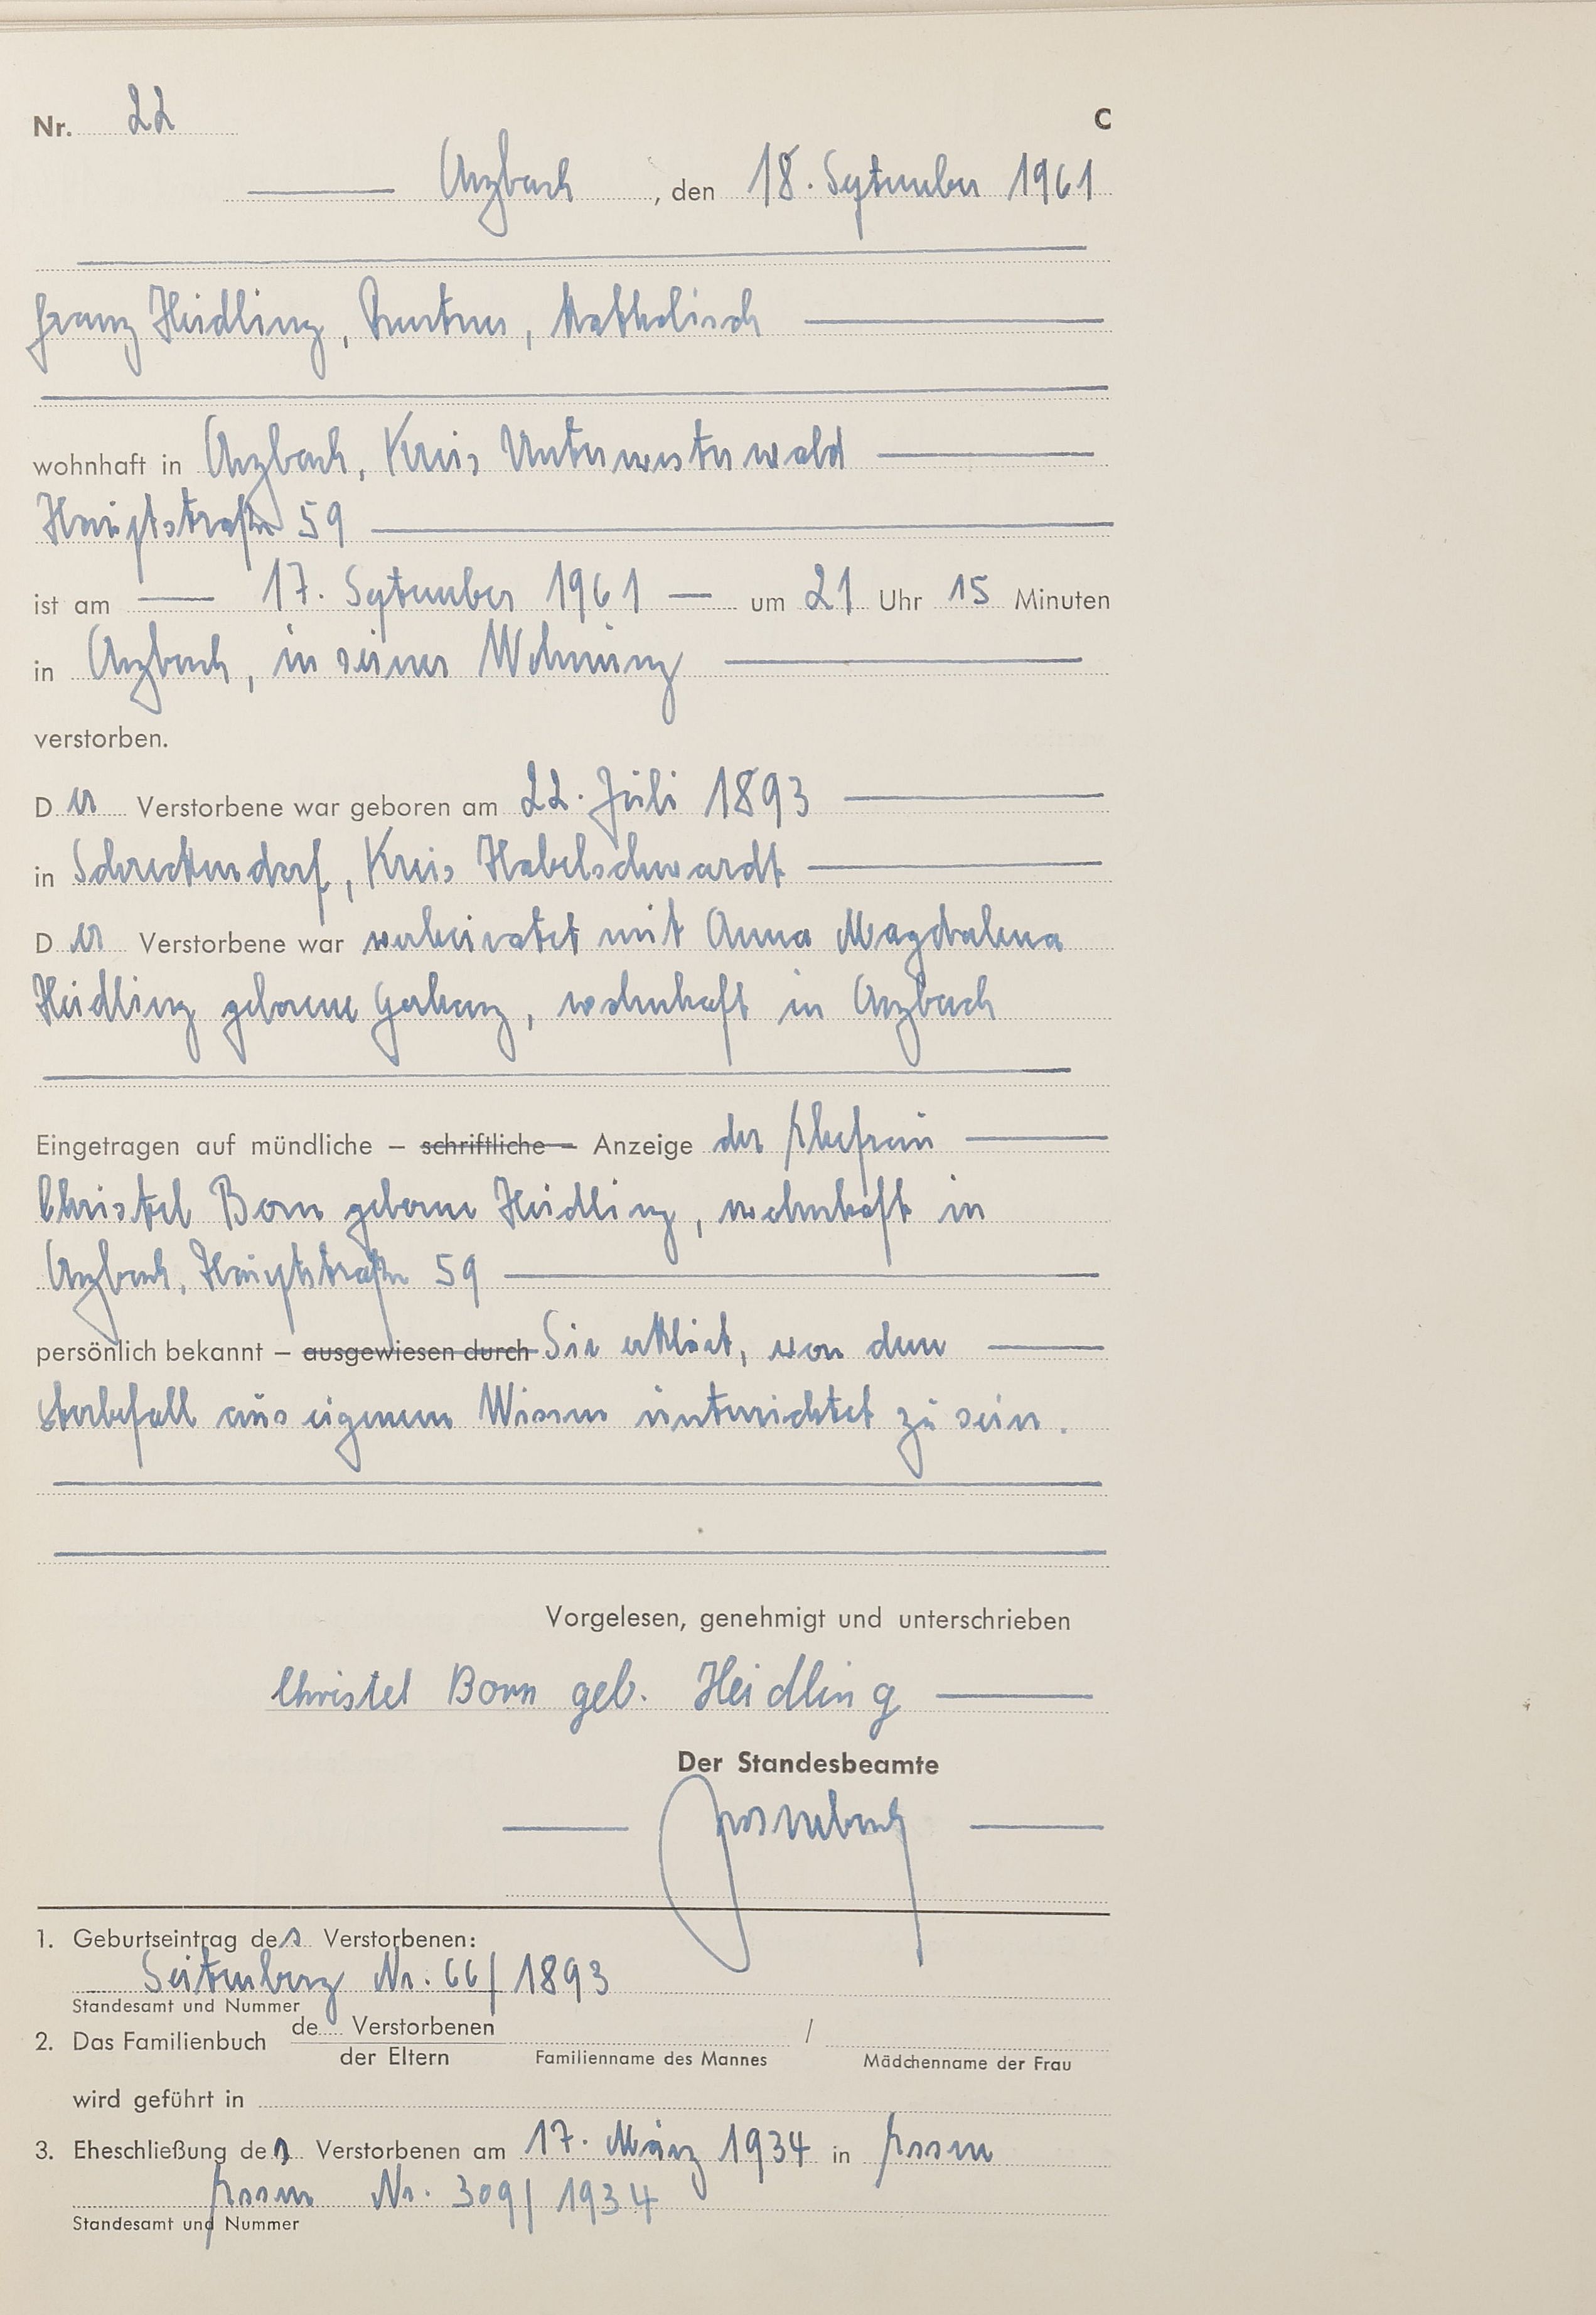 Nr. 22 C
Arzbach, den 18. September 1961
Franz Heidling, Rentner, katholisch
wohnhaft in Arzbach, Kreis Unterwesterwald
Hauptstraße 59
ist am 17. September 1961 um 21 Uhr 15 Minuten
in Arzbach, in seiner Wohnung
verstorben.
Der Verstorbene war geboren am 22. Juli 1893
in Schreckendorf, Kreis Habelschwerdt
Der Verstorbene war verheiratet mit Anna Magdalena
Heidling geborene Gerharz, wohnhaft in Arzbach
Eingetragen auf mündliche – schriftliche – Anzeige der Ehefrau
Christel Born geborene Heidling, wohnhaft in
Arzbach, Hauptstraße 59
persönlich bekannt – ausgewiesen durch Sie erklärt, von dem
Sterbefall aus eigenem Wissen unterrichtet zu sein.
Vorgelesen, genehmigt und unterschrieben
Christel Born geb. Heidling
Der Standesbeamte
1. Geburtseintrag des Verstorbenen:
Seitenberg Nr. 66/1893
Standesamt und Nummer
2. Das Familienbuch de Verstorbenen /
der Eltern Familienname des Mannes Mädchenname der Frau
wird geführt in
3. Eheschließung des Verstorbenen am 17. März 1934 in Essen
Essen Nr. 309/1934
Standesamt und Nummer